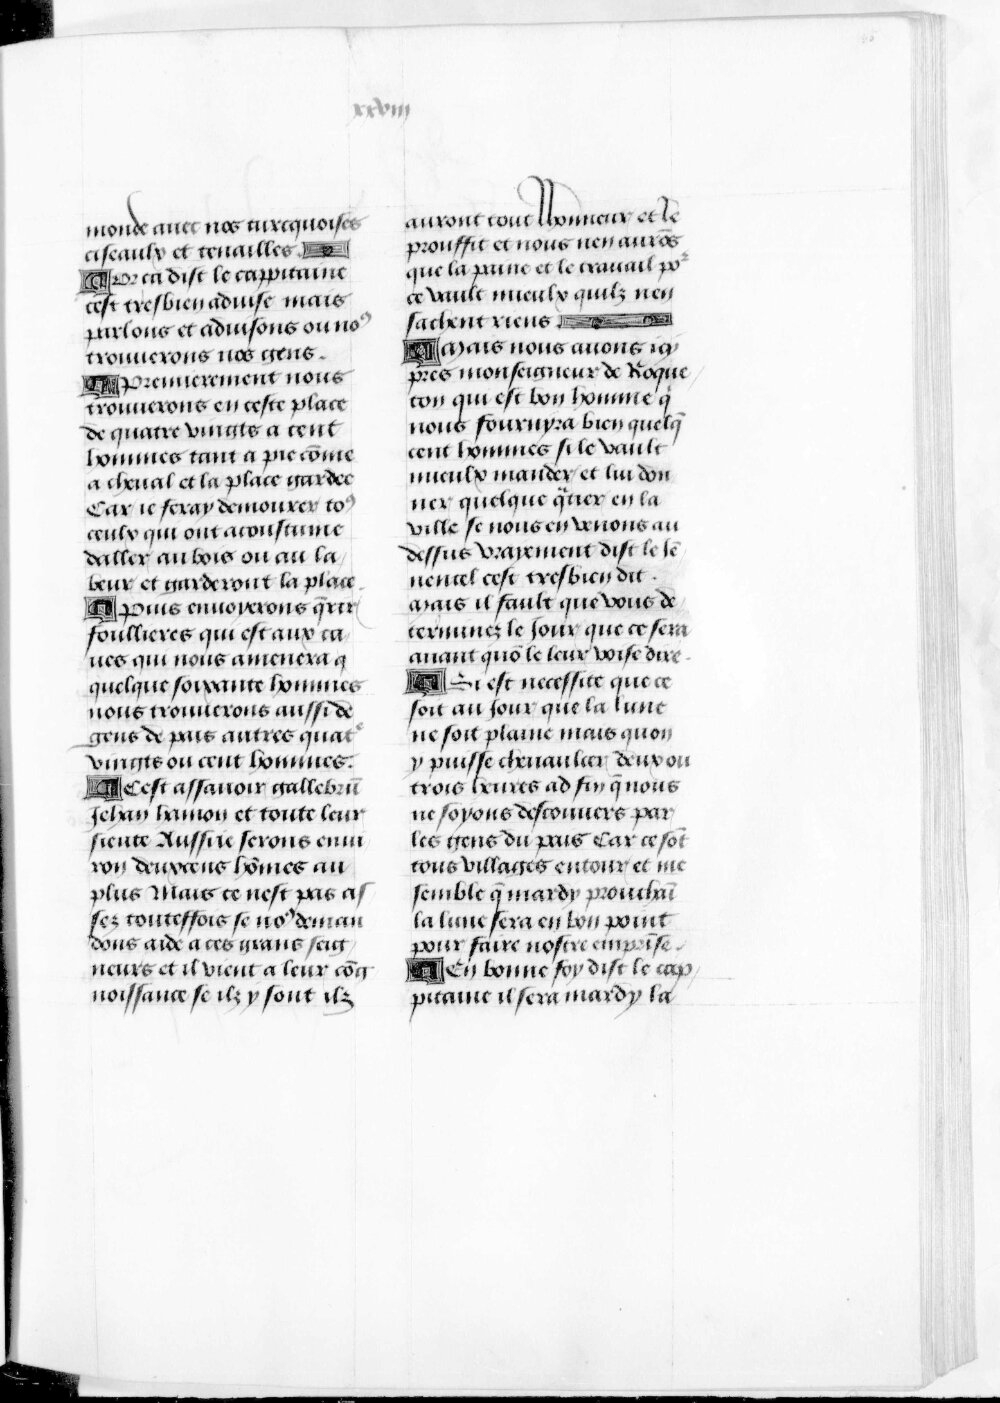 xxviii
monde auec nos turcquoises
ciseaulx et tenailles.
Or ca dist le cappitaine
cest tresbien aduise mais
parlons et aduisons ou noꝰ
trouuerons nos gens.
Premierement nous
trouuerons en ceste place
de quatre vingts a cent
hommes tant a pie cōme
a cheual et la place gardee
Car ie feray demourer toꝰ
ceulx qui ont acoustume
daller au bois ou au la/
beur et garderont la place.
Puis enuoyerons q̄rir
foullieres qui est aux ca/
ues qui nous amenera
quelque soixante hommes
nous trouuerons aussi de
gens de pais autres quatͤ
vingts ou cent hommes.
Cest assauoir gallebrū
Jehan hamon et toute leur
siente Aussi ne serons enui
ron deuxcens hōmes au
plus Mais ce nest pas as
sez toutesfois se noꝰ deman
dons aide a ces grans seig
neurs et il vient a leur cōg
noissance se ilz y sont ilz
auront tout lhonneur et le
prouffit et nous nen aurōs
que la paine et le trauail poͬ
ce vault mieulx quilz nen
sachent riens
Mais nous auons icy
pres monseigneur de Roque/
ton qui est bon homme q̄
nous fournyra bien quelq̄
cent hommes si le vault
mieulx mander et lui don
ner quelque q̄tier en la
ville se nous en venons au
dessus vrayement dist le se/
nencel cest tresbien dit.
Mais il fault que vous de/
terminez le Jour que ce sera
auant quō le leur voise dire.
Il est necessite que ce
soit au Jour que la lune
ne soit plaine mais quon
y puisse cheuaulcer deux ou
trois heures ad fin q̄ nous
ne soyons descouuers par
les gens du pais Car ce sōt
tous villages entour et me
semble q̄ mardy prouchaī
la lune sera en bon point
pour faire nostre emprise.
En bonne foy dist le cap/
pitaine il sera mardy la